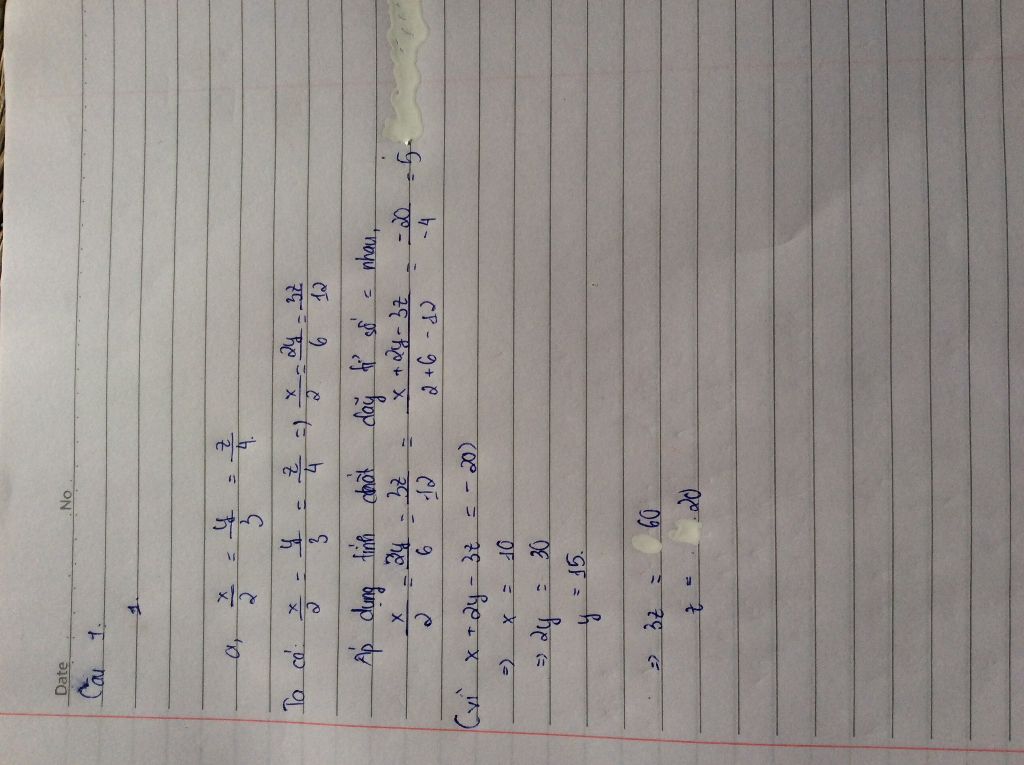 Date No
Câu 1.
1.
a, x/2 = y/3 = z/4.
Ta có: x/2 = y/3 = z/4 => x/2 = 2y/6 = 3z/12
Áp dụng tính chất dãy tỉ số = nhau,
x/2 = 2y/6 = 3z/12 = x + 2y - 3z / 2 + 6 - 12 = -20/-4 = 5
(vì x + 2y - 3z = -20)
=> x = 10
=> 2y = 30
y = 15.
=> 3z = 60
z = 20